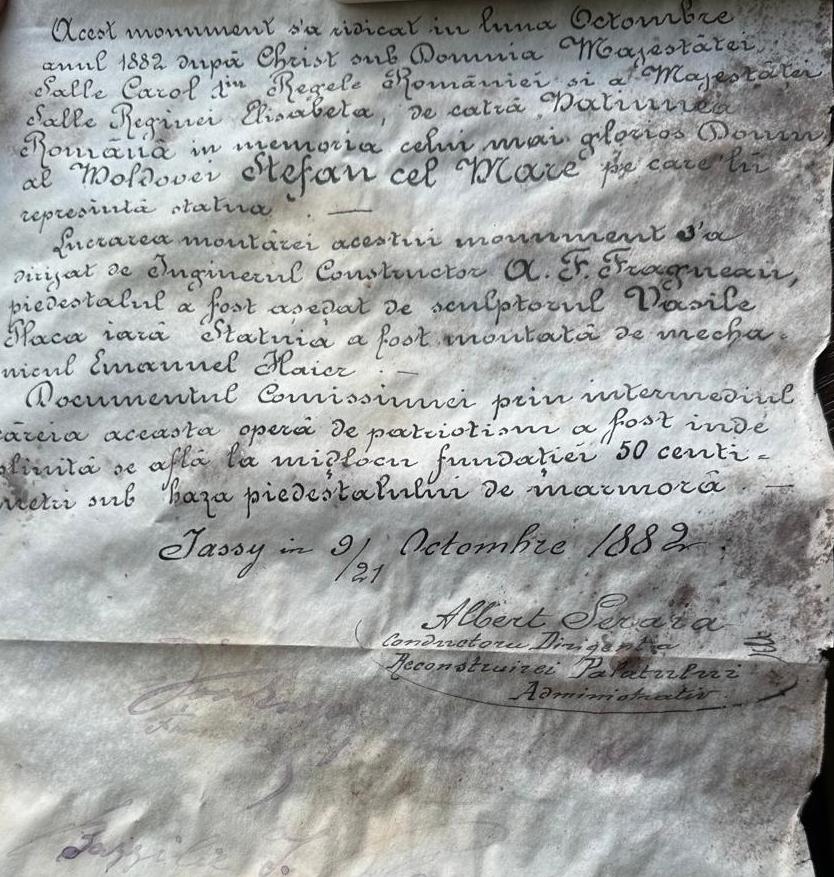 Acest monument s'a ridicat in luna Octombre
anul 1882 după Christ sub Domnia Majestăței
Salle Carol I.iu Regele României si a Majestăței
Salle Reginei Elisabeta, de catră Natiunea
Română in memoria celui mai glorios Domn,
al Moldovei Stefan cel Mare pe care 'lu
represintă statua. —
Lucrarea montărei acestui monument s'a
dirijat de Inginerul Constructor A. F. Fragneau,
piedestalul a fost asedat de sculptorul Vasile
Placa iară Statuia a fost montată de mecha-
nicul Emanuel Haier. —
Documentul Comissiunei prin intermediul
căreia aceasta operă de patriotism a fost inde
plinită se află la mijlocu fundației 50 centi=
metri sub baza piedeștalului de marmoră —
Jassy in 9/21 Octombre 1882.
Albert
Conductoru Dirigentă a
Reconstruirei Palatului
Administrativ